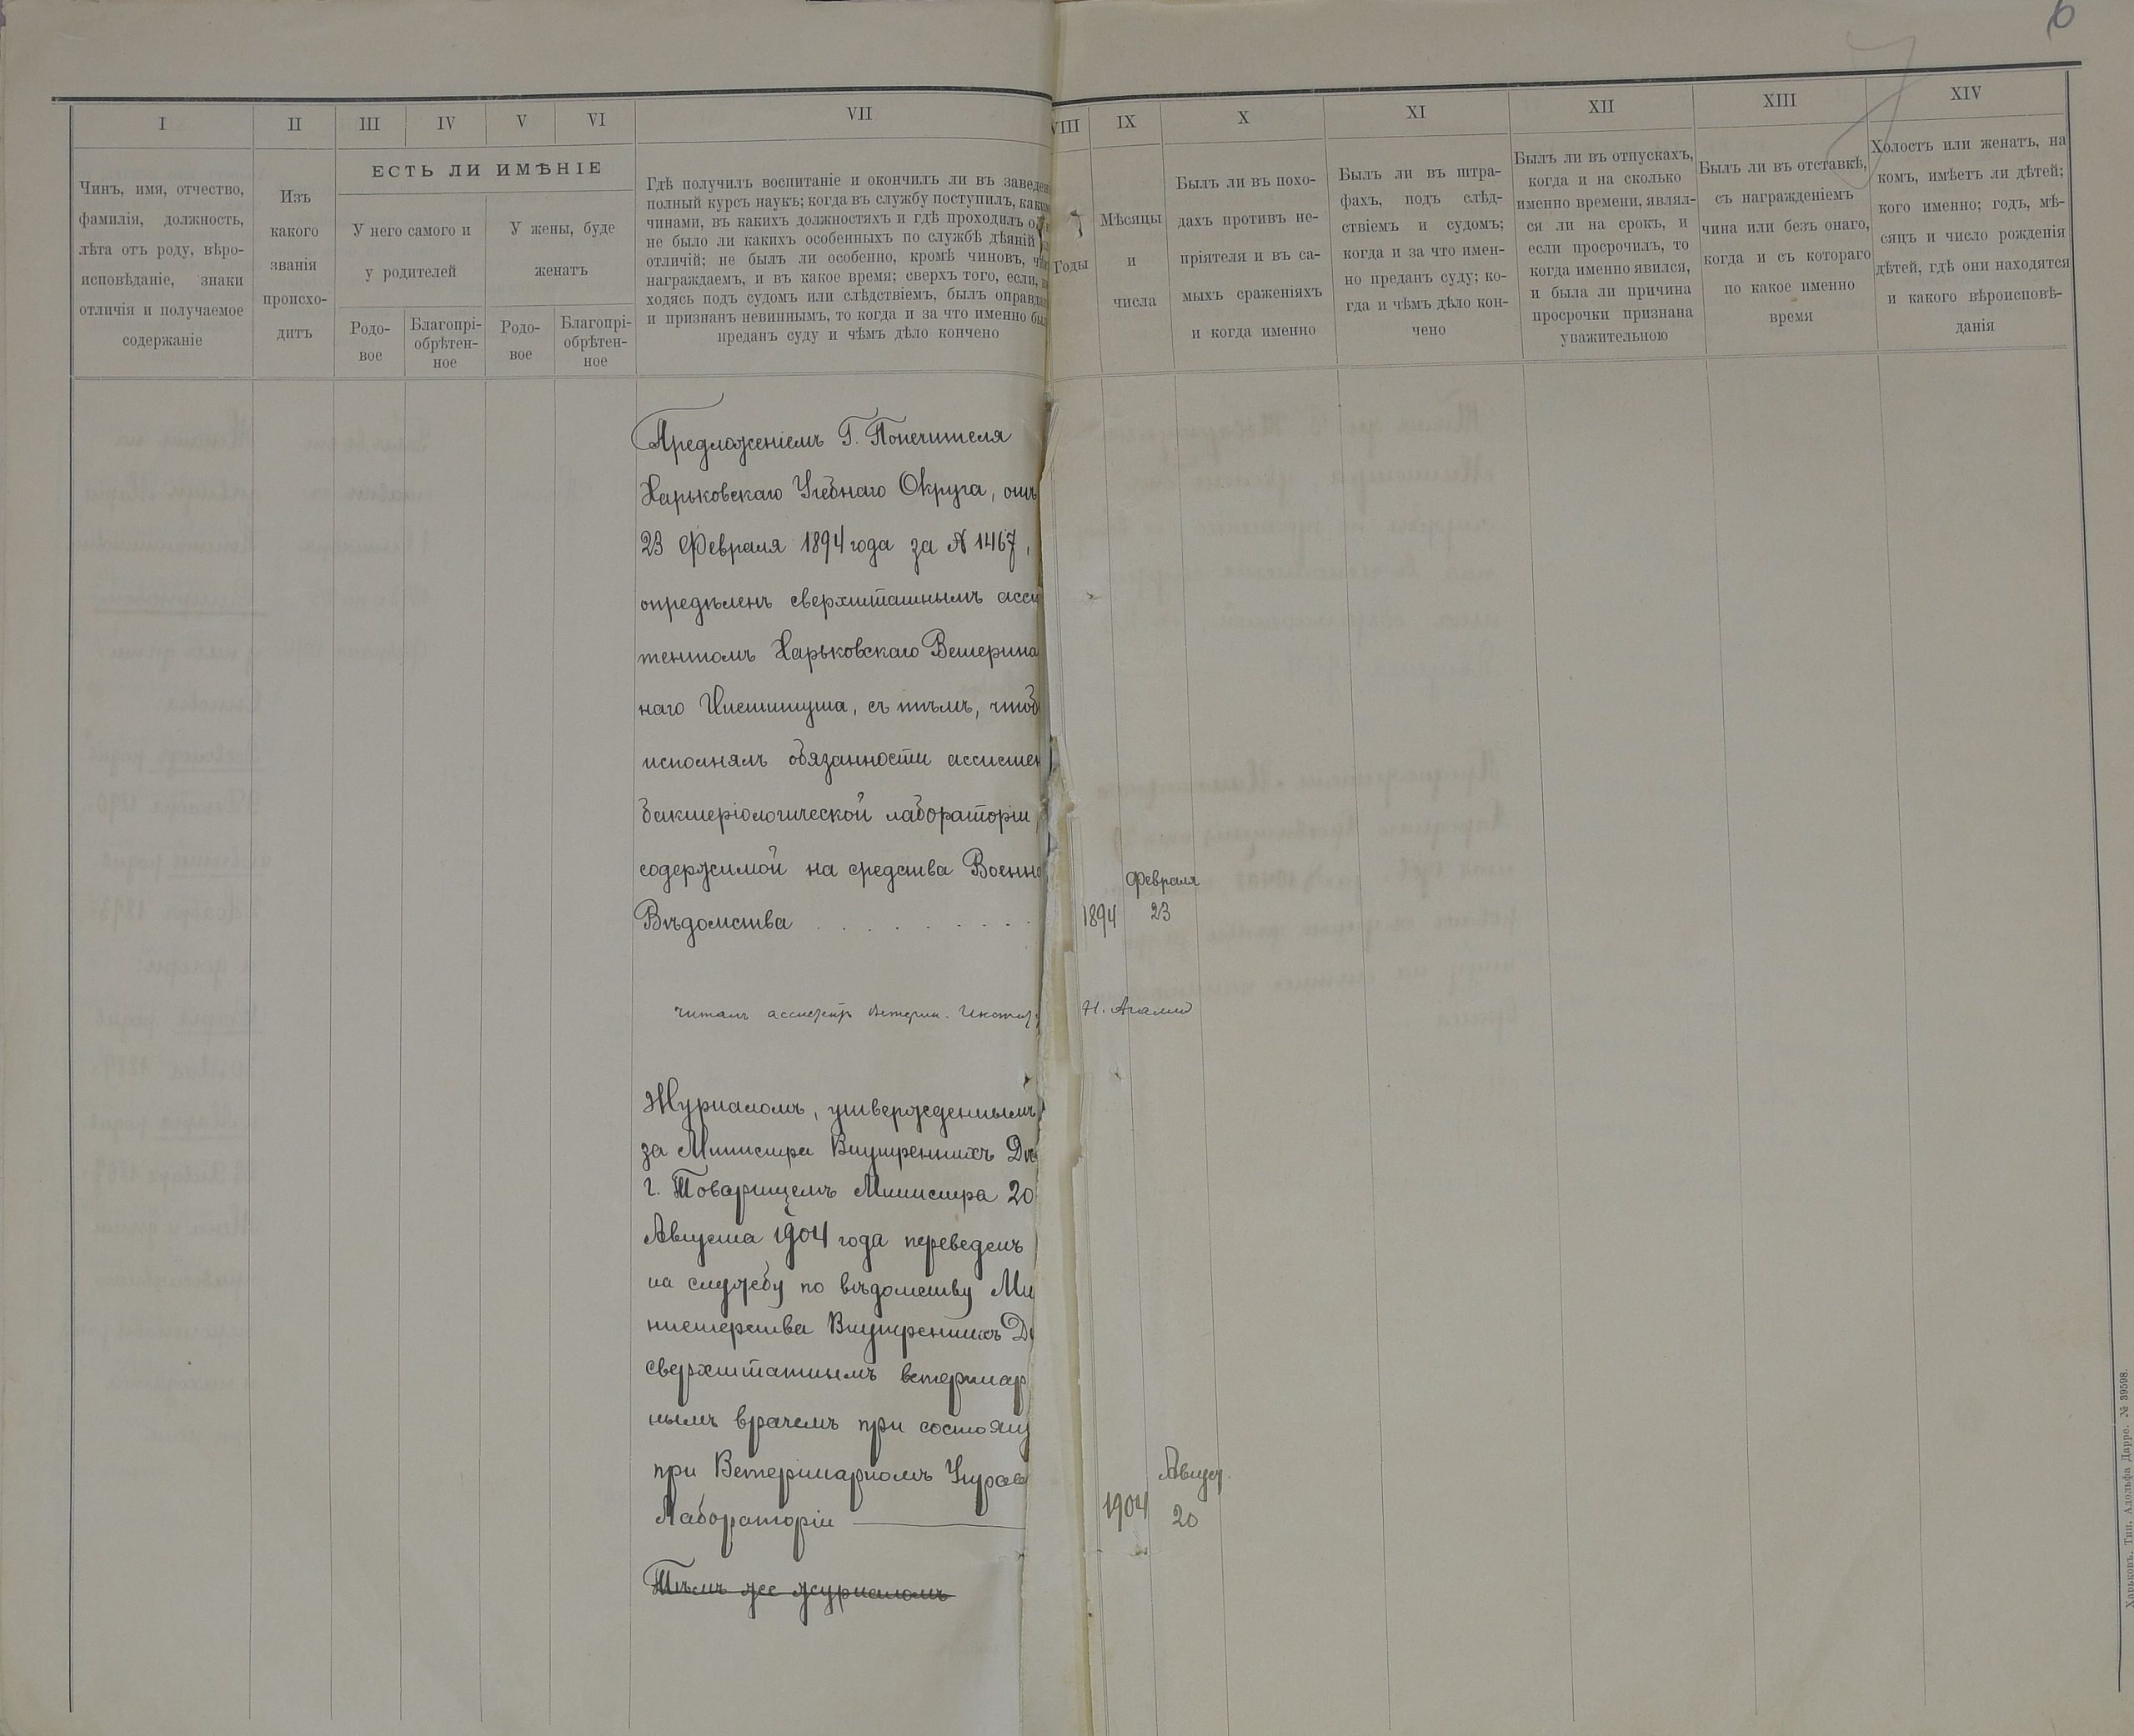 6
I
II
III
IV
V
VI
VII
VIII
IX
X
XI
XII
XIII
XIV
Чинъ, имя, отчество,
фамилія, должность,
лѣта отъ роду, вѣро-
исповѣданіе, знаки
отличія и получаемое
содержаніе
Изъ
какого
званія
происхо-
дитъ
ЕСТЬ ЛИ ИМѢНІЕ
У него самого и
у родителей
У жены, буде
женатъ
Родо-
вое
Благопрі-
обрѣтен-
ное
Родо-
вое
Благопрі-
обрѣтен-
ное
Гдѣ получилъ воспитаніе и окончилъ ли въ заведен
полный курсъ наукъ; когда въ службу поступилъ, каки
чинами, въ какихъ должностяхъ и гдѣ проходилъ о
не было ли какихъ особенныхъ по службѣ дѣяній
отличій; не былъ ли особенно, кромѣ чиновъ, ч
награждаемъ, и въ какое время; сверхъ того, если,
ходясь подъ судомъ или слѣдствіемъ, былъ оправда
и признанъ невиннымъ, то когда и за что именно бы
преданъ суду и чѣмъ дѣло кончено
Годы
Мѣсяцы
и
числа
Былъ ли въ похо-
дахъ противъ не-
пріятеля и въ са-
мыхъ сраженіяхъ
и когда именно
Былъ ли въ штра-
фахъ, подъ слѣд-
ствіемъ и судомъ;
когда и за что имен-
но преданъ суду; ко-
гда и чѣмъ дѣло кон-
чено
Былъ ли въ отпускахъ,
когда и на сколько
именно времени, являл-
ся ли на срокъ, и
если просрочилъ, то
когда именно явился,
и была ли причина
просрочки признана
уважительною
Былъ ли въ отставкѣ,
съ награжденіемъ
чина или безъ онаго,
когда и съ котораго
по какое именно
время
Холостъ или женатъ, на
комъ, имѣетъ ли дѣтей;
кого именно; годъ, мѣ-
сяцъ и число рожденія
дѣтей, гдѣ они находятся
и какого вѣроисповѣ-
данія
Предложеніемъ Г. Попечителя
Харьковскаго Учебнаго Округа, отъ
23 Февраля 1894 года за № 1467,
опредѣленъ сверхштатнымъ асси
тентомъ Харьковскаго Ветерина
наго Института, съ тѣмъ, чтоб
исполнялъ обязанности ассистен
бактеріологической лабораторіи
содержимой на средства Военно
Вѣдомства . . . . . . . . .
1894
Февраля
23
Читалъ ассистентъ Ветерин. Инстит
Н.
Журналомъ, утвержденнымъ
за Министра Внутреннихъ Дѣ
г. Товарищемъ Министра 20
Августа 1904 года переведенъ
на службу по вѣдомству Ми
нистерства Внутреннихъ Д
сверхштатнымъ ветеринар
нымъ врачемъ при состоящ
при Ветеринарномъ Управ
Лабораторіи
1904
Август.
20
Тѣмъ же журналомъ
Харьковъ. Тип. Адольфа Дарре. № 39598.